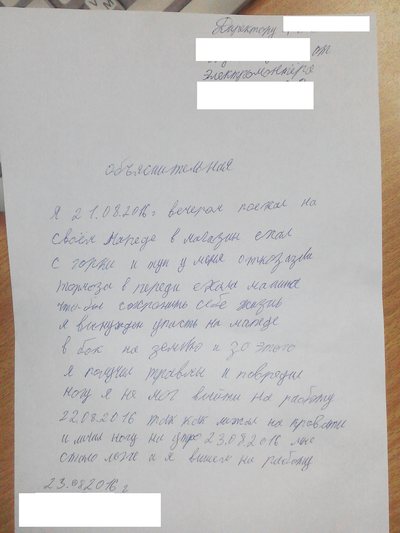 Директору
от
электромонтёра
объяснительная
Я 21.08.2016г вечером поехал на
своём мапеде в магазин ехал
с горки и тут у меня отказала
тормоза в переди ехала машина
что-бы сохранить себе жизнь
я вынужден упасть на мапеде
в бок на землю и за этого
я получил травмы и повредил
ногу я не мог выйти на работу
22.08.2016 так как лежал на кровати
и лечил ногу на утро 23.08.2016 мне
стало легче и я вышел на работу
23.08 2016 г